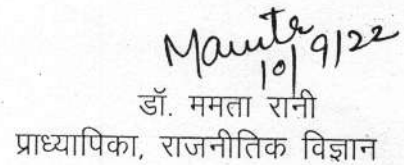 Mamta
10/9/22
डॉ. ममता रानी
प्राध्यापिका, राजनीतिक विज्ञान